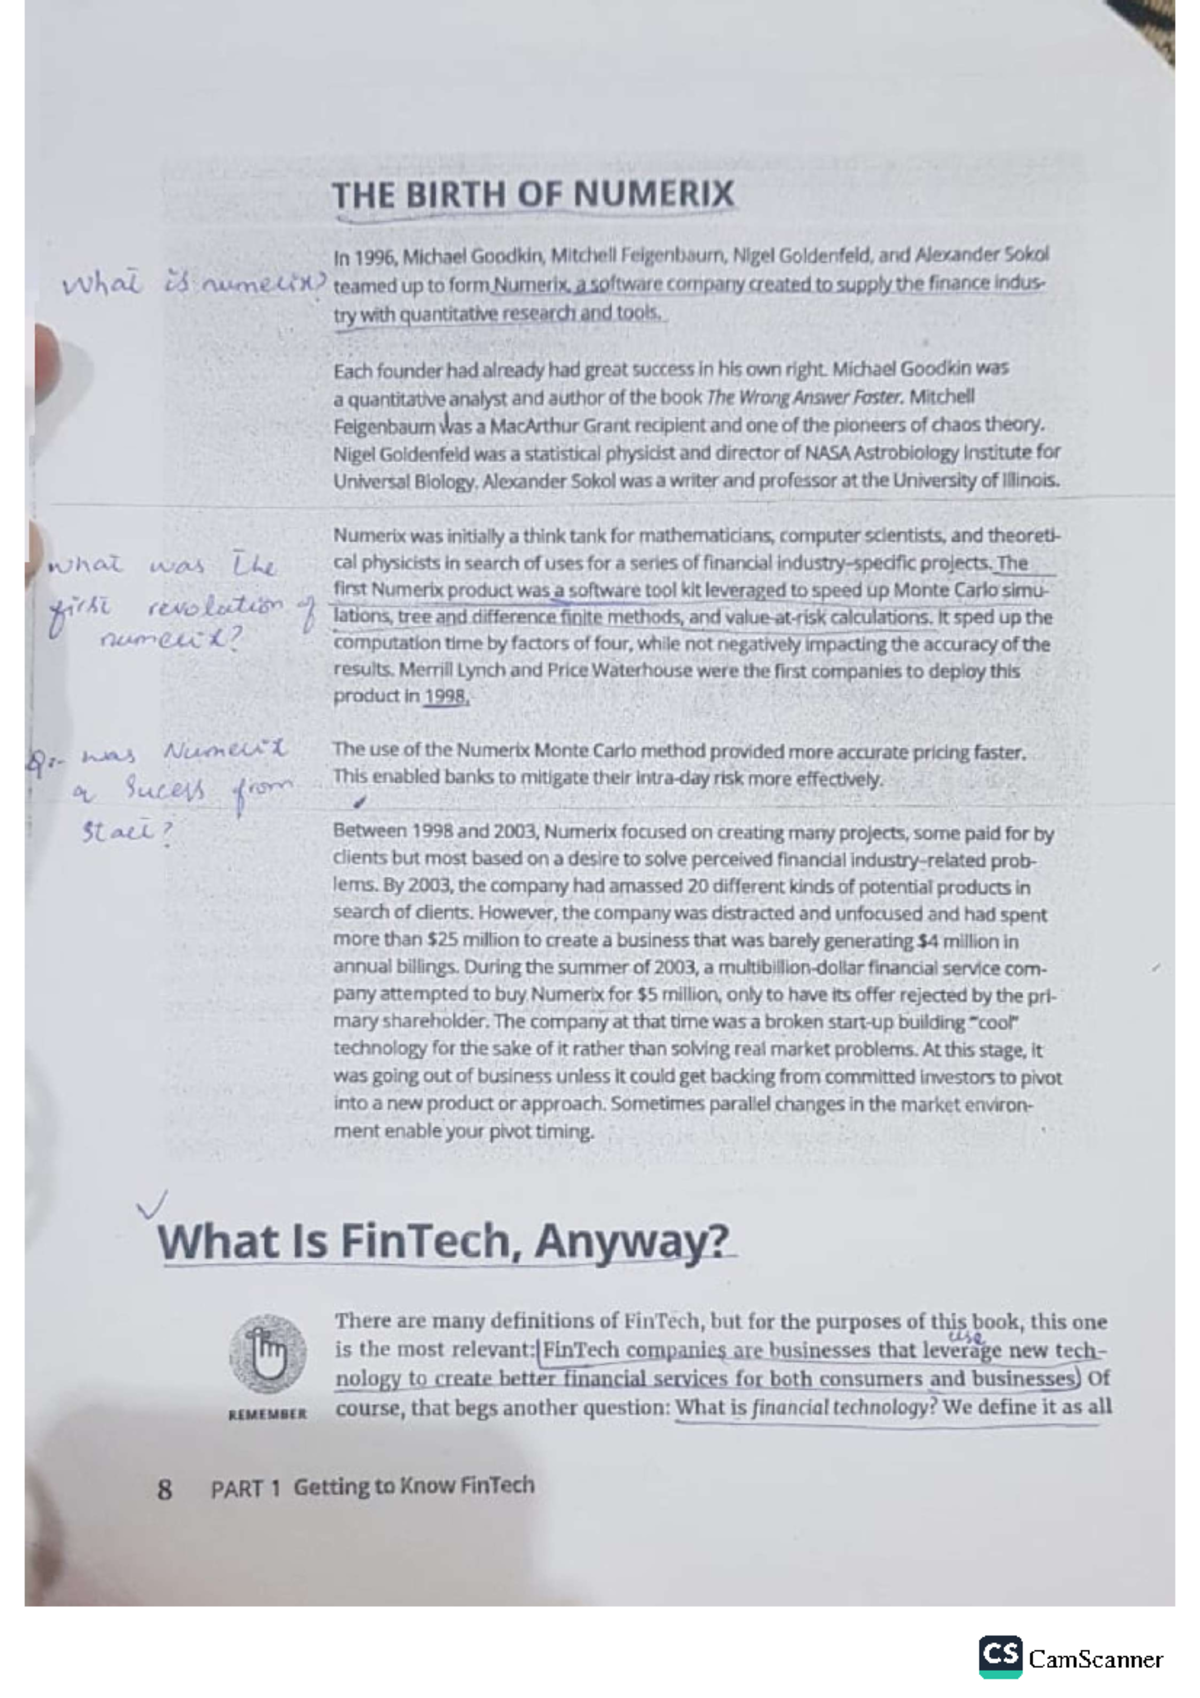 THE BIRTH OF NUMERIX
In 1996, Michael Goodkin, Mitchell Feigenbaum, Nigel Goldenfeld, and Alexander Sokol
What is numerix?
teamed up to form Numerix, a software company created to supply the finance indus-
try with quantitative research and tools.
Each founder had already had great success in his own right. Michael Goodkin was
a quantitative analyst and author of the book The Wrong Answer Faster. Mitchell
Feigenbaum was a MacArthur Grant recipient and one of the pioneers of chaos theory.
Nigel Goldenfeld was a statistical physicist and director of NASA Astrobiology Institute for
Universal Biology. Alexander Sokol was a writer and professor at the University of Illinois.
what was the
first revolution of
numerix?
Numerix was initially a think tank for mathematicians, computer scientists, and theoreti-
cal physicists in search of uses for a series of financial industry–specific projects. The
first Numerix product was a software tool kit leveraged to speed up Monte Carlo simu-
lations, tree and difference finite methods, and value-at-risk calculations. It sped up the
computation time by factors of four, while not negatively impacting the accuracy of the
results. Merrill Lynch and Price Waterhouse were the first companies to deploy this
product in 1998.
Q:- was Numerix
a Sucess from
Start?
The use of the Numerix Monte Carlo method provided more accurate pricing faster.
This enabled banks to mitigate their intra-day risk more effectively.
Between 1998 and 2003, Numerix focused on creating many projects, some paid for by
clients but most based on a desire to solve perceived financial industry–related prob-
lems. By 2003, the company had amassed 20 different kinds of potential products in
search of clients. However, the company was distracted and unfocused and had spent
more than $25 million to create a business that was barely generating $4 million in
annual billings. During the summer of 2003, a multibillion-dollar financial service com-
pany attempted to buy Numerix for $5 million, only to have its offer rejected by the pri-
mary shareholder. The company at that time was a broken start-up building "cool"
technology for the sake of it rather than solving real market problems. At this stage, it
was going out of business unless it could get backing from committed investors to pivot
into a new product or approach. Sometimes parallel changes in the market environ-
ment enable your pivot timing.
What Is FinTech, Anyway?
There are many definitions of FinTech, but for the purposes of this book, this one
use
is the most relevant: FinTech companies are businesses that leverage new tech-
nology to create better financial services for both consumers and businesses. Of
REMEMBER
course, that begs another question: What is financial technology? We define it as all
8 PART 1 Getting to Know FinTech
CS CamScanner